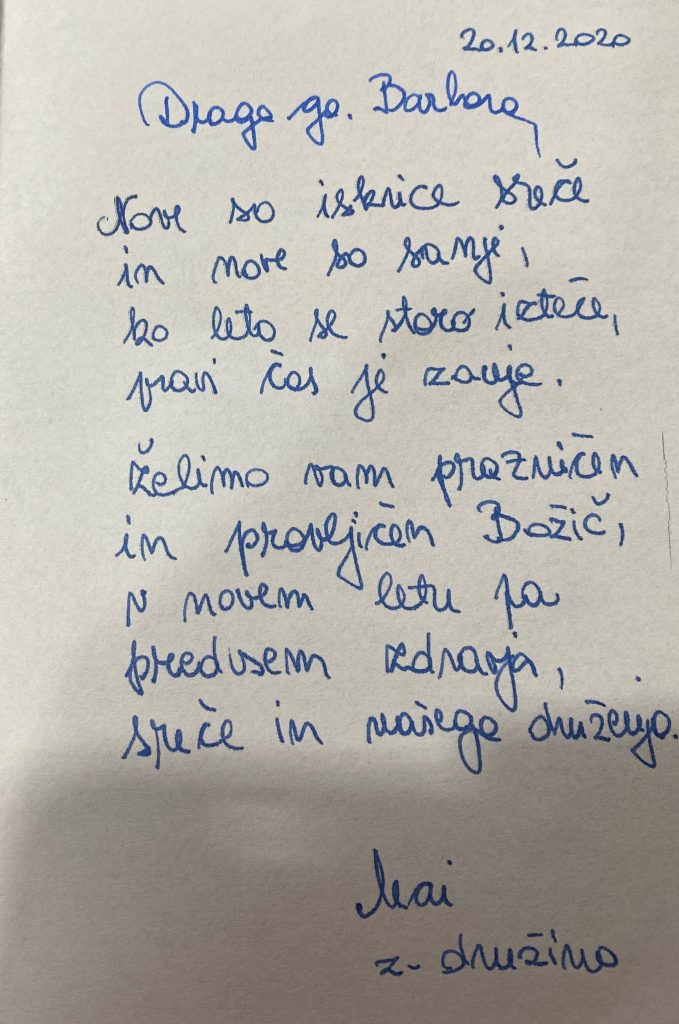 20.12.2020
Draga ga. Barbara,
Nove so iskrice sreče
in nove so sanje,
ko leto se staro izteče,
pravi čas je zanje.
Želimo vam prazničen
in pravljičen Božič,
v novem letu pa
predvsem zdravja,
sreče in našega druženja.
Mai
z družino